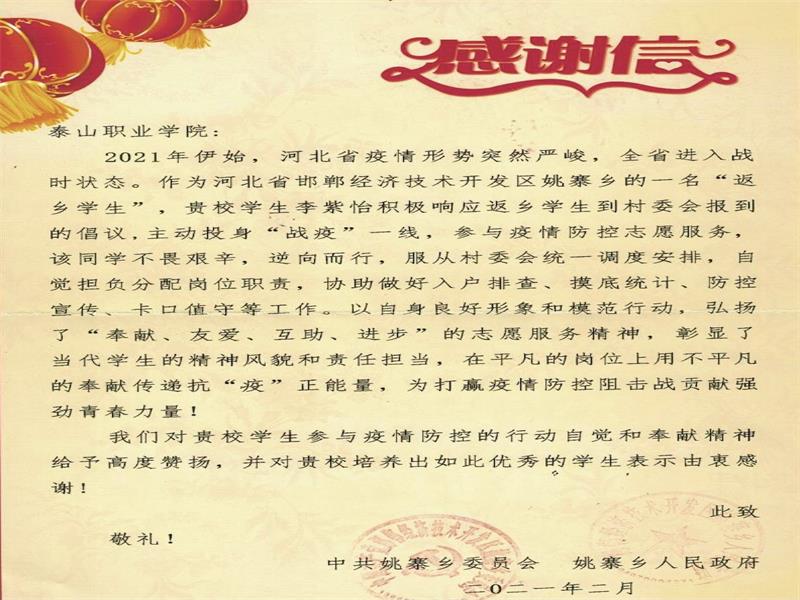 感谢信
泰山职业学院：
2021年伊始，河北省疫情形势突然严峻，全省进入战
时状态。作为河北省邯郸经济技术开发区姚寨乡的一名“返
乡学生”，贵校学生李紫怡积极响应返乡学生到村委会报到
的倡议,主动投身“战疫”一线，参与疫情防控志愿服务，
该同学不畏艰辛，逆向而行，服从村委会统一调度安排，自
觉担负分配岗位职责，协助做好入户排查、摸底统计、防控
宣传、卡口值守等工作。以自身良好形象和模范行动，弘扬
了“奉献、友爱、互助、进步”的志愿服务精神，彰显了
当代学生的精神风貌和责任担当，在平凡的岗位上用不平凡
的奉献传递抗“疫”正能量，为打赢疫情防控阻击战贡献强
劲青春力量！
我们对贵校学生参与疫情防控的行动自觉和奉献精神
给予高度赞扬，并对贵校培养出如此优秀的学生表示由衷感
谢！
此致
敬礼！
中共姚寨乡委员会 姚寨乡人民政府
二〇二一年二月